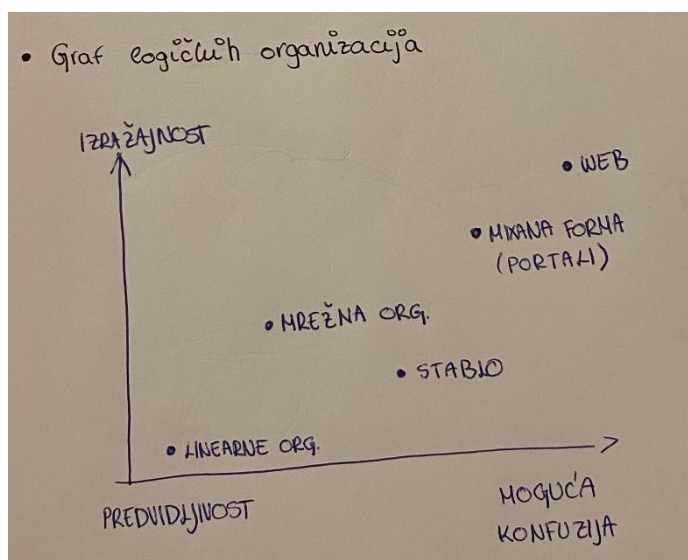 • Graf logičkih organizacija
IZRAŽAJNOST
• WEB
• MIXANA FORMA
(PORTALI)
• MREŽNA ORG.
• STABLO
• LINEARNE ORG.
PREDVIDLJIVOST
MOGUĆA
KONFUZIJA